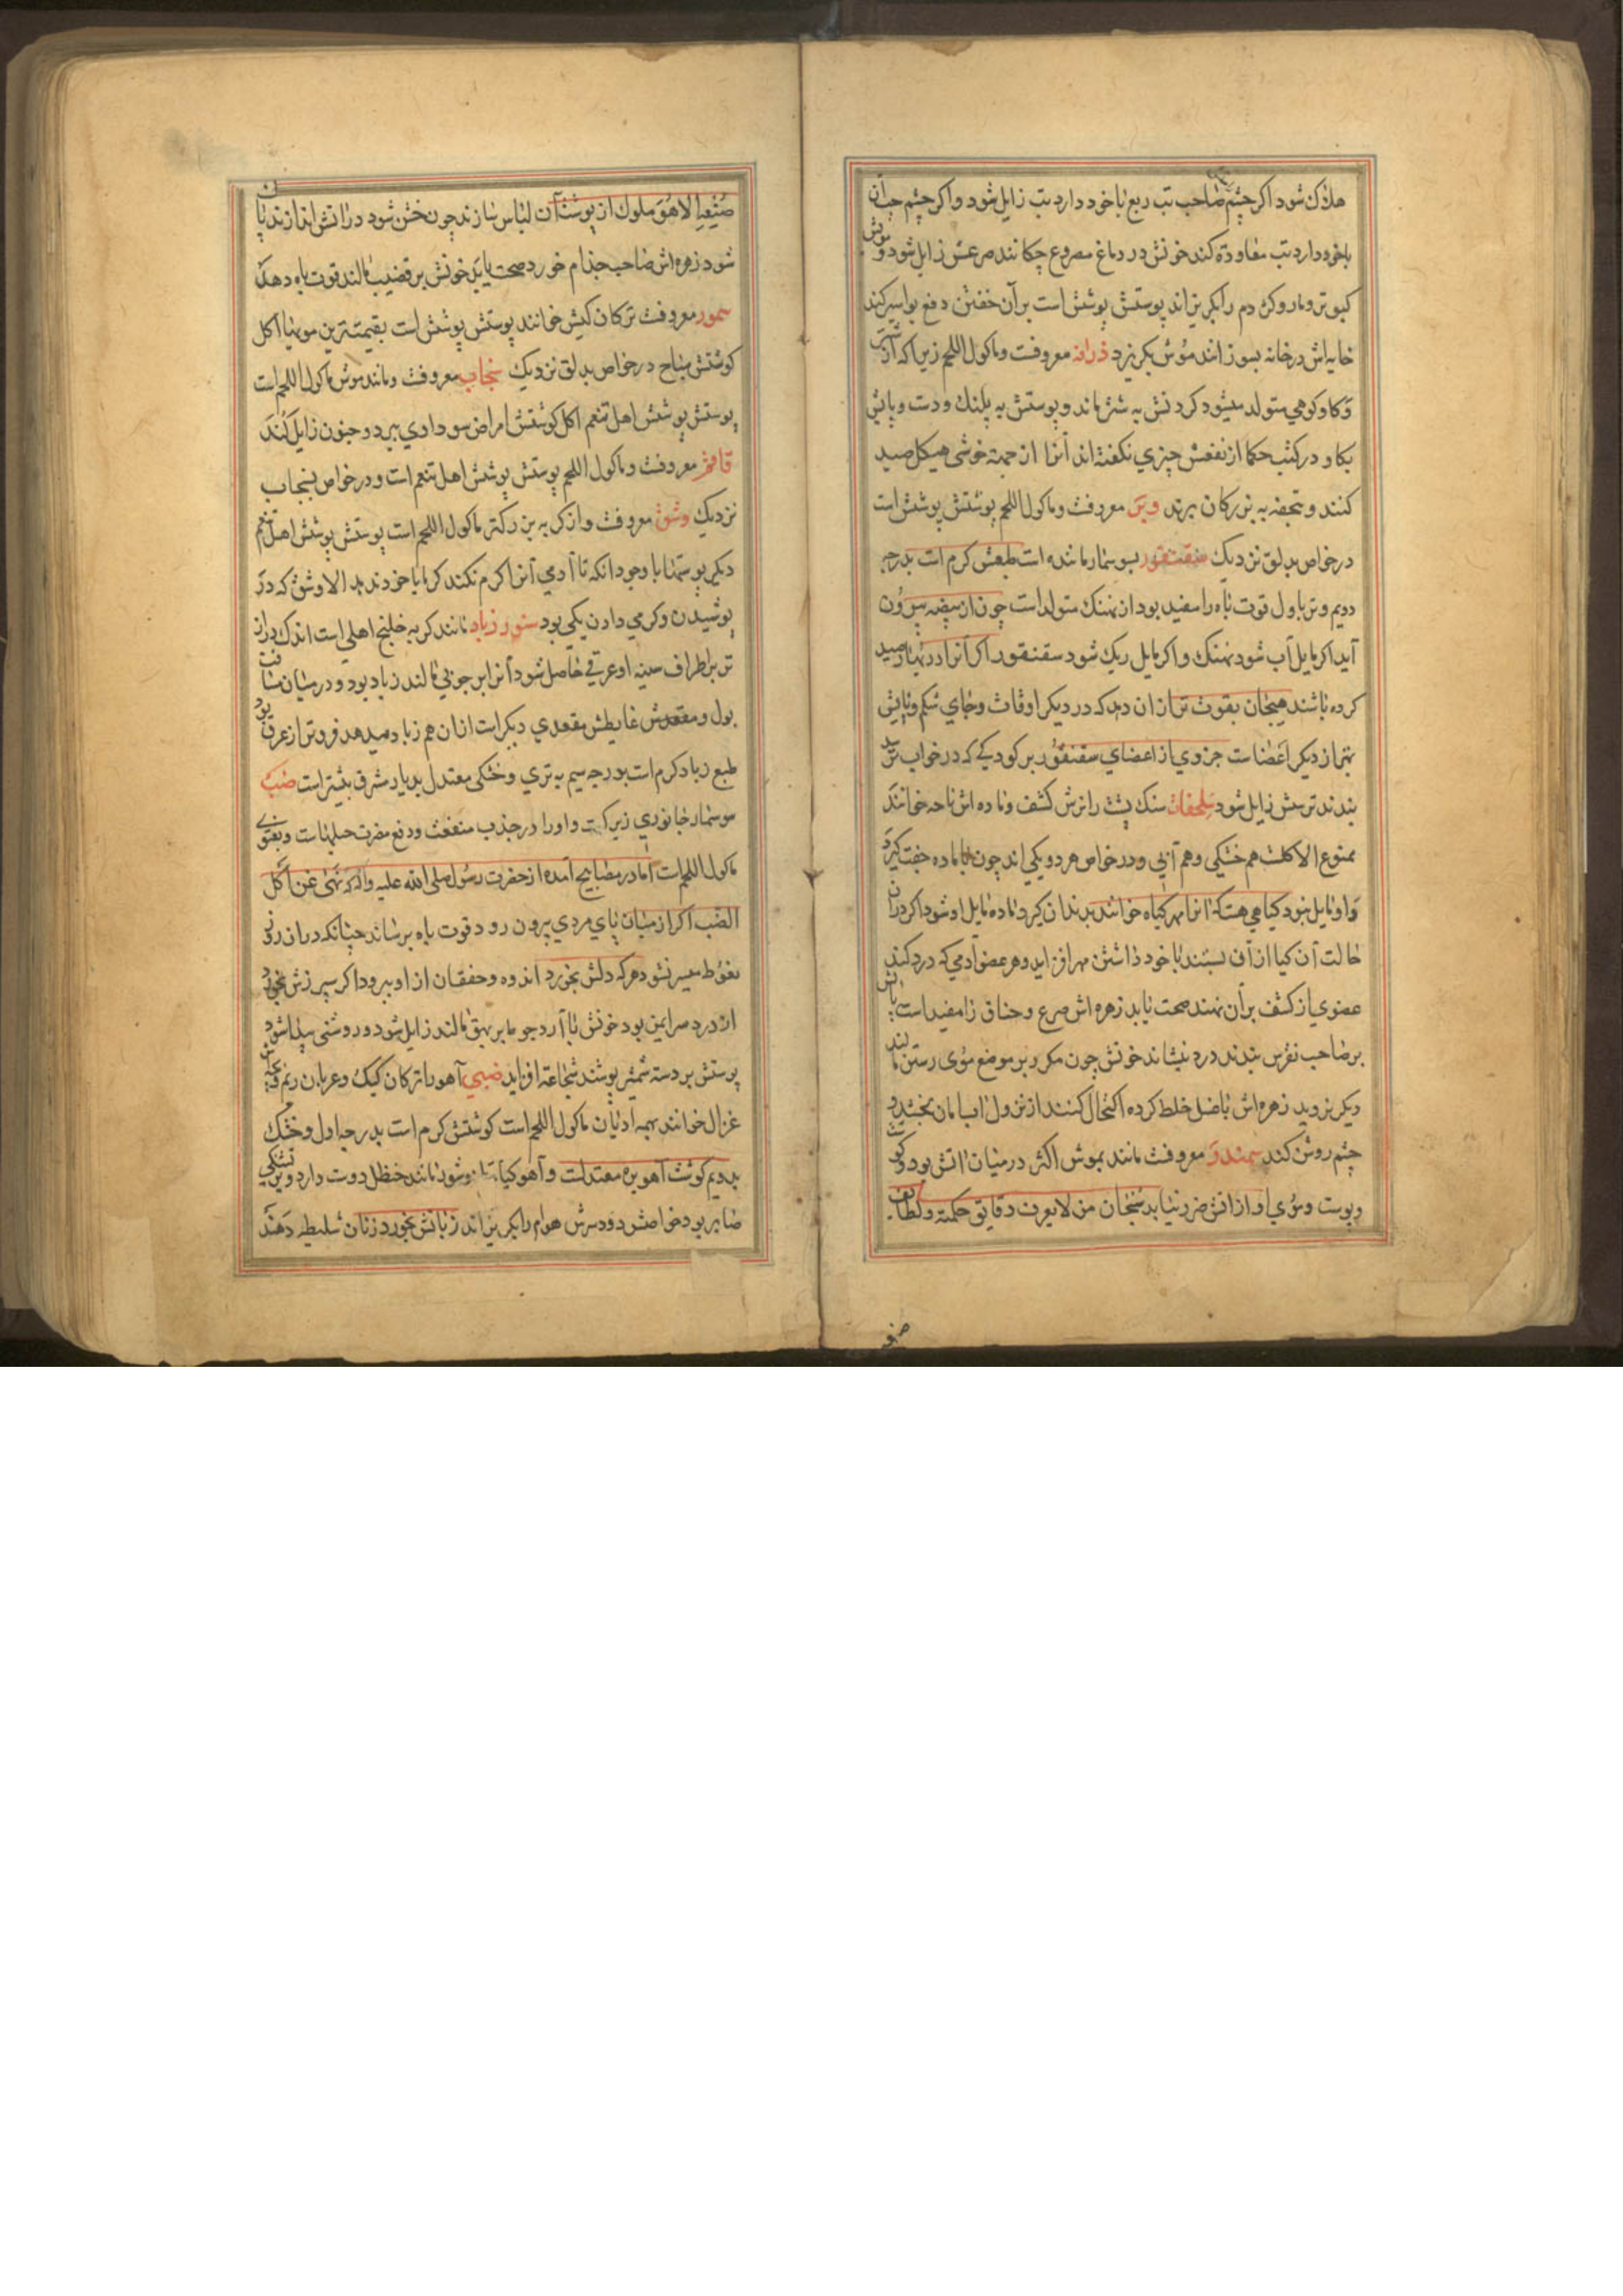 هلاک شود اکر چشم صاحب تب ربع با خود دارد تب زایل شود و اکر چشم چپ آن
باخود دارد تب معاودة کند خونش در دماغ مصروع چکانند صرعش زایل شود و مویش
کبوتر و مار و کژدم را بکریزاند پوستش پوشش است بر آن خفتن دفع بواسیر کند
خایه اش در خانه بسوزانند موش بکریزد ذرافه معروفست و ماکول اللحم زیرا که از شتر
و کاو کوهی متولد میشود کردنش به شتر ماند و پوستش به پلنک و دست و پایش
بکاو در کتب حکما از نفعش چیزی نکفته اند آنرا از جهة خوشی هیکل صید
کنند و بتحفه به بزرکان برند وبر معروفست و ماکول اللحم پوستش پوشش است
در خواص بدلق نزدیک سقنقور بسوسمار ماننده است طبعش کرم است بدرجه
دویم و تر باول قوت باه را مفید بود از نهنک متولد است چون از بیضه بیرون
آید اکر مایل آب شود نهنک و اکر مایل ریک شود سقنقور اکر آنرا در بهار صید
کرده باشند هیجان بقوت تر از ان دهد که در دیکر اوقات و جای شکم و پایش
بهتر از دیکر اعضاست جزوی از اعضای سقنقور بر کودکی که در خواب ترسد
بندند ترسش زایل شود سلحفاة سنک پشت را نرش کشف و ماده اش ناحه خوانند
ممنوع الاکلست هم خشکی و هم آبی و در خواص هر دو یکی اند چون با ماده جفت کیرد
و او مایل نبود کیاهی هست که انرا مهر کیاه خوانند بدندان کیرد ماده مایل او شود اکر در ان
حالت آن کیا از آن بستند با خود داشتن مهر افزاید و هر عضو آدمی که درد کند
عضوی از کشف بر آن نهند صحت یابد زهره اش صرع و خناق را مفید است پایش
بر صاحب نقرس بندند درد بنشاند خونش چون مکرر بر موضع موی رستن مالند
دیکر نروید زهره اش با عسل خلط کرده اکتحال کنند از نزول اب امان بخشد و
چشم روشن کند سمندر معروفست مانند بموش اکثر در میان اتش بود و کوشت
و پوست و موی او از اتش ضرر نیابد سبحان من لا یعرف دقایق حکمته و لطائف
صنعه الا هو ملوک از پوست آن لباس سازند چون خشن شود در اتش اندازند پاک
شود زهره اش صاحب جذام خورد صحت یابد خونش بر قضیب مالند قوت باه دهد
سمور معروفست ترکان کیش خوانند پوستش پوشش است بقیمت ترین مویها اکل
کوشتش مباح در خواص بدلق نزدیک سنجاب معروفست و مانند موش ماکول اللحم است
پوستش پوشش اهل تنعم اکل کوشتش امراض سوداوی ببرد و جنون زایل کند
قاقم معروفست و ماکول اللحم پوستش پوشش اهل تنعم است و در خواص بسنجاب
نزدیک وشق معروفست و از کربه بزرکتر ماکول اللحم است پوستش پوشش اهل تنعم
دیکر پوستها با وجود انکه تا آدمی آنرا کرم نکند کرما با خود ندهد الا وشق که در
پوشیدن و کرمی دادن یکی بود سنور زباد مانند کربه خلنج اهلی است اندک دراز
تر بر اطراف سینه او عرقی حاصل شود آنرا بر چوبی مالند زباد بود و در میان مسافت
بول و مقعدش غایطش مقعدی دیکر است از ان هم زباد میدهد فروتر از عرق بود
طبع زباد کرم است بدرجه سیم به تری و خشکی معتدل بدیار مشرق بیشتر است ضب
سوسمار جانوری زیرک است و او را در جذب منفعت و دفع مضرت حیلهاست و بقولی
ماکول اللحم است اما در مصابیح آمده از حضرت رسول صلی الله علیه و اله که نهی عن اکل
الضب اکر از میان پای مردی بیرون رود قوت باه برساند چنانکه در ان روز
نعوظ میسر نشود هر که دلش بخورد اندوه و خفقان از او ببرود اکر سپرزش بخورد
از درد سر ایمن بود خونش با آرد جو ما بر بهق مالند زایل شود و روشنی پیدا شود
پوستش بر دسته شمشیر پوشند شجاعة افزاید ضبی آهو را ترکان کیک و عربان ریم و بچه اش
غزال خوانند بهمه ادیان ماکول اللحم است کوشتش کرم است بدرجه اول و خشک
بدویم کوشت آهو بره معتدلست و آهو کیا تازه شود مانند حنظل دوست دارد و بر تشنکی
صابر بود خواصش دود سرش هوام را بکریزاند زبانش بخورد زنان سلیطه دهند